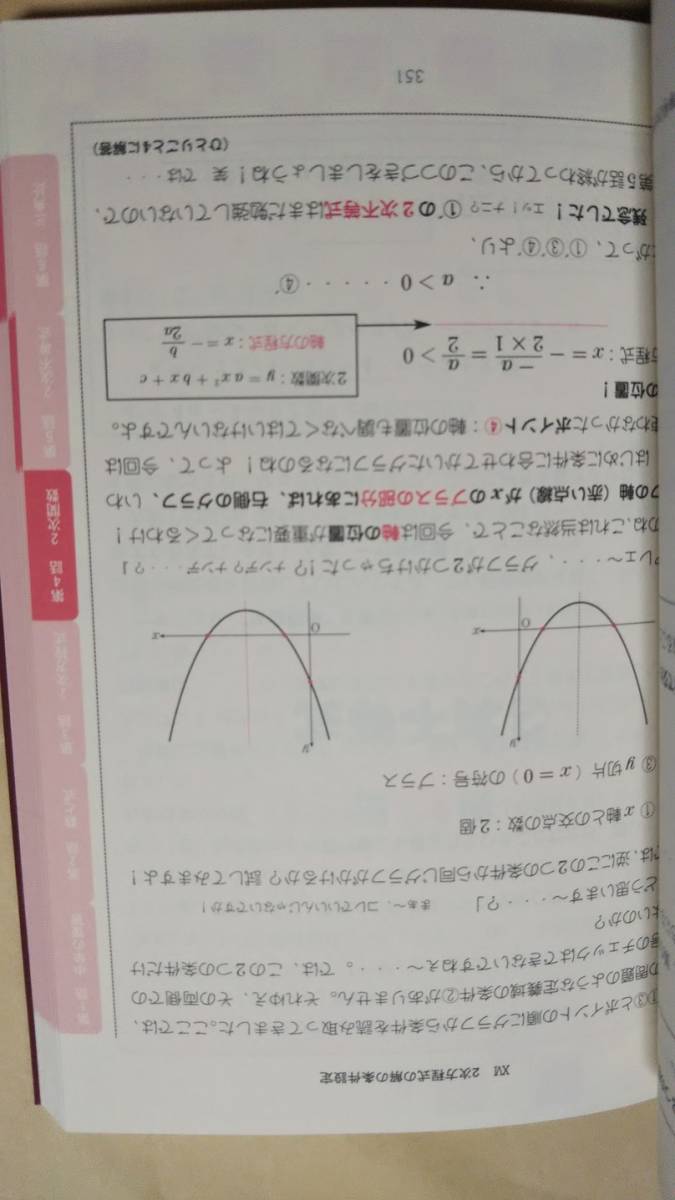 XVI 2次方程式の解の条件設定
①③とポイントの順にグラフから条件を読み取ってきました。ここでは、
の問題のような定義域の条件②がありません。それゆえ、その両側での
のチェックはできないですねぇ～・・・・。では、この2つの条件だけ
よいのいか？
どう思います～・・・・？」 まぁ～、コレでいいんじゃないですか！
では、逆にこの2つの条件から同じグラフがかけるか？試してみますよ！
① x軸との交点の数：2個
③ y切片（x＝0）の符号：プラス
y
O
x
y
O
x
レェ～・・・・、グラフが2つかけちゃった！？ナンデ？ナンデ・・・・？」
のね、これは当然なことで、今回は軸の位置が重要になってくるわけ！
フの軸（赤い点線）がxのプラスの部分にあれば、右側のグラフ、いわ
はじめに条件に合わせてかいたグラフになるのね！よって、今回は
使わなかったポイント④：軸の位置も調べなくてはいけないんですよ。
の位置！
方程式：x＝－\frac{－a}{2×1}＝\frac{a}{2}＞0
2次関数：y＝ax²＋bx＋c
軸の方程式：x＝－\frac{b}{2a}
∴ a＞0 ・・・・・④´
がって、①´③´④´より、
残念でした！エッ！ナニ？①´の2次不等式はまだ勉強していないので、
第5話が終わってから、このつづきをしましょうね！笑 では・・・
（ひとりごと4に解答）
351
第2話 数と式
第3話 1次方程式
第4話 2次関数
第5話 2次不等式